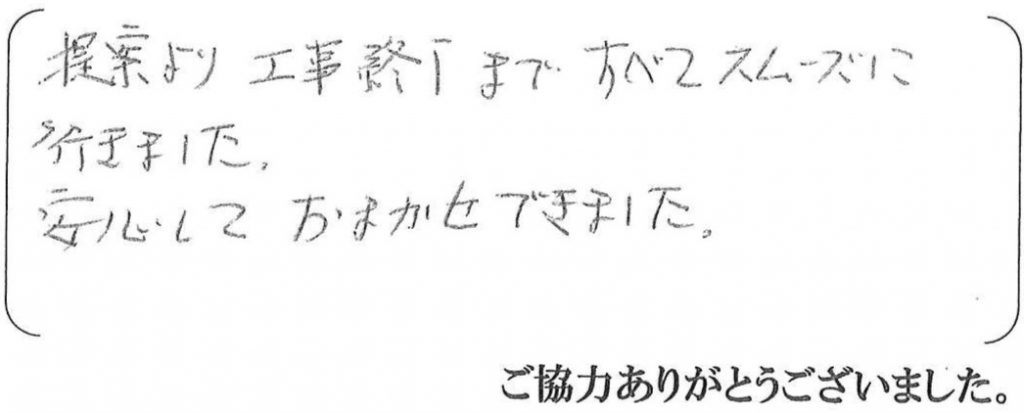 提案より 工事終了まで すべてスムーズに
行きました。
安心して おまかせできました。
ご協力ありがとうございました。